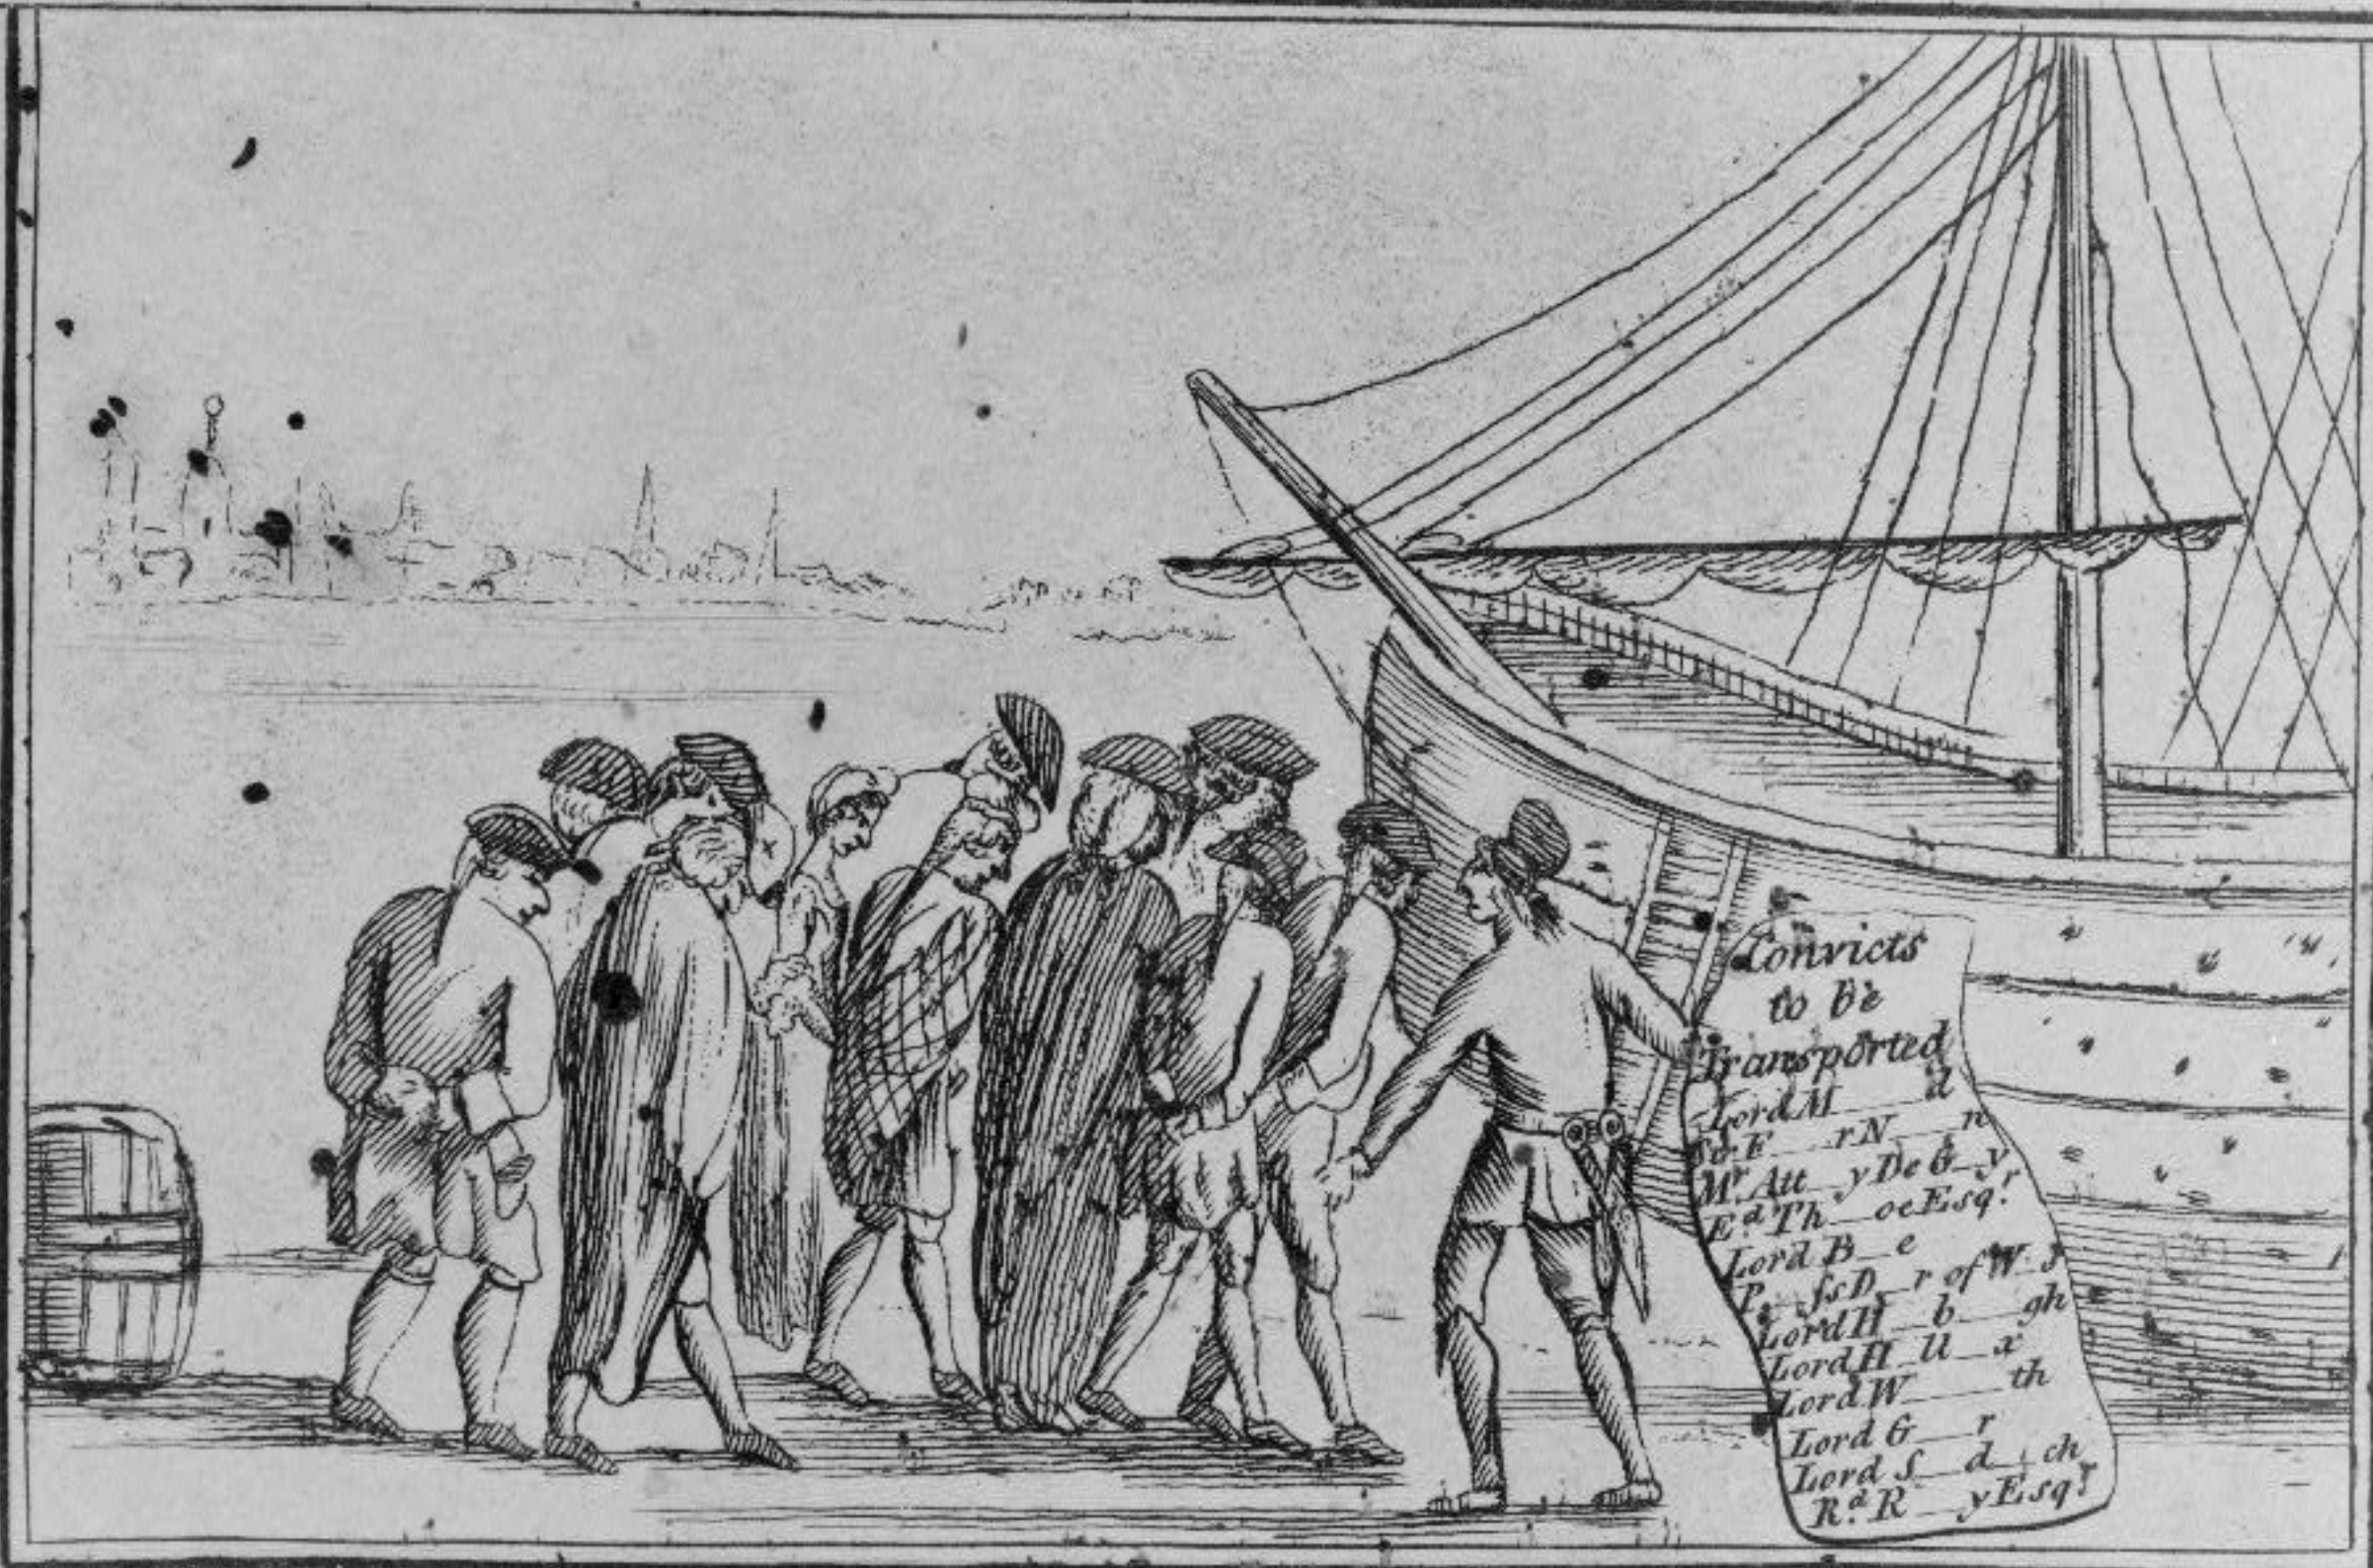 Convicts
to be
Transported
Lord M____d
Sr. F__r N__n
Mr. Att__y De G_y
Ed. Th__oe Esqr.
Lord B_e
P__ſs D_r of W_s
Lord H__b__gh
Lord H_ll_x
Lord W____th
Lord G__r
Lord S__d_ch
Rd. R__y Esqr.